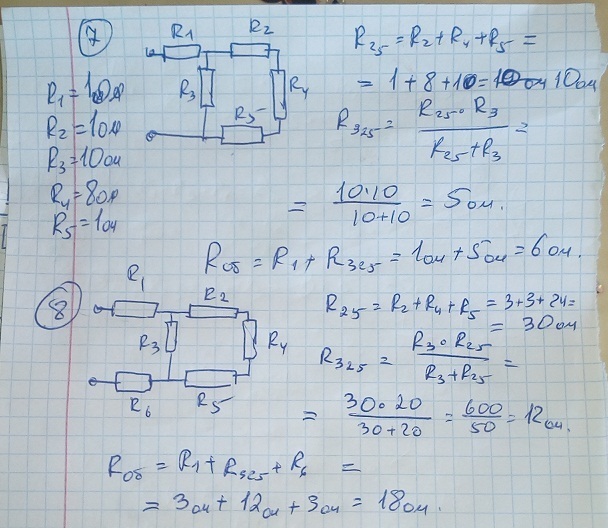 7
R1 R2 R3 R4 R5
R1 = 1 Ом
R2 = 1 Ом
R3 = 10 Ом
R4 = 8 Ом
R5 = 1 Ом
R25 = R2 + R4 + R5 =
= 1 + 8 + 1 = 10 Ом
R325 = R25 · R3 / R25 + R3 =
= 10·10 / 10+10 = 5 Ом.
Rоб = R1 + R325 = 1 Ом + 5 Ом = 6 Ом.
8
R1 R2 R3 R4 R5 R6
R25 = R2 + R4 + R5 = 3+3+24 =
= 30 Ом
R325 = R3 · R25 / R3 + R25 =
= 30·20 / 30+20 = 600 / 50 = 12 Ом.
Rоб = R1 + R325 + R6 =
= 3 Ом + 12 Ом + 3 Ом = 18 Ом.